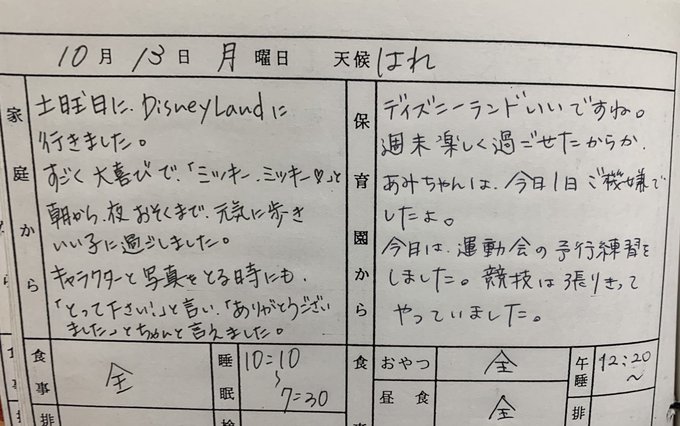 10月13日 月曜日 天候 はれ
家庭から
土曜日に、DisneyLandに
行きました。
すごく大喜びで、「ミッキー、ミッキー♡」と
朝から、夜おそくまで、元気に歩き
いい子に過ごしました。
キャラクターと写真をとる時にも、
「とって下さい!」と言い、「ありがとうござい
ました」とちゃんと言えました。
保育園から
ディズニーランドいいですね。
週末楽しく過ごせたからか、
あみちゃんは、今日1日ご機嫌で
したよ。
今日は、運動会の予行練習を
しました。競技は張りきって
やっていました。
食事 全
睡眠 10:10
〜
7:30
食
おやつ 全
昼食 全
午睡 12:20
〜
排
排